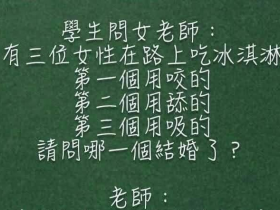 學生問女老師：
有三位女性在路上吃冰淇淋
第一個用咬的
第二個用舔的
第三個用吸的
請問哪一個結婚了？
老師：